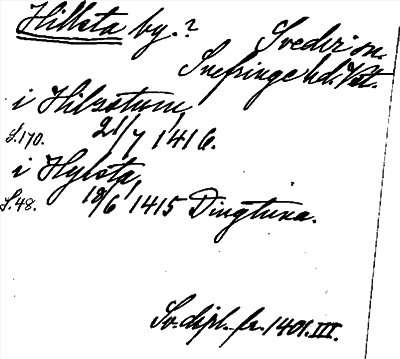 Hillsta by.?
Svedvi sn.
Snefringe hd. Vst.
i Hilsatum,
S. 170. 21/7 1416.
i Hylsta,
S. 48. 18/6 1415 Dingtuna.
Sv. dipl. fr. 1401. III.